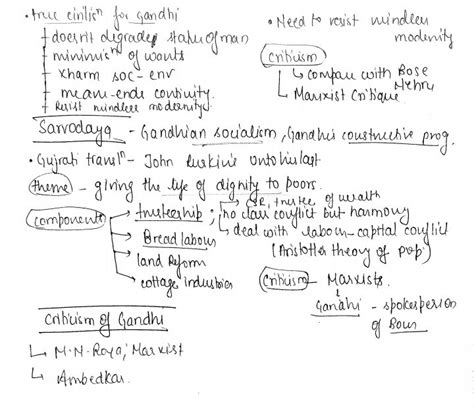 • true civilisn for Gandhi
doesn't degrades status of man
minimisn of wants
xharm soc - env
means-ends continuity.
Resist mindless modernity
• Need to resist mindless modernity
criticism
↳ compare with Bose Nehru
↳ Marxist Critique
Sarvodaya - Gandhian socialism, Gandhi's constructive prog.
• Gujrati transln - John Ruskin's unto his last
theme - giving the life of dignity to poors.
components → trusteeship : CSR, trustee of wealth
no class conflict but harmony
deal with labour-capital conflict
(Aristotle's theory of prop)
→ Bread labour
→ land Reform
→ cottage industries
criticism - Marxists.
Gandhi - spokesperson of Bour
Criticism of Gandhi
↳ M.N. Roya; Marxist
↳ Ambedkar.